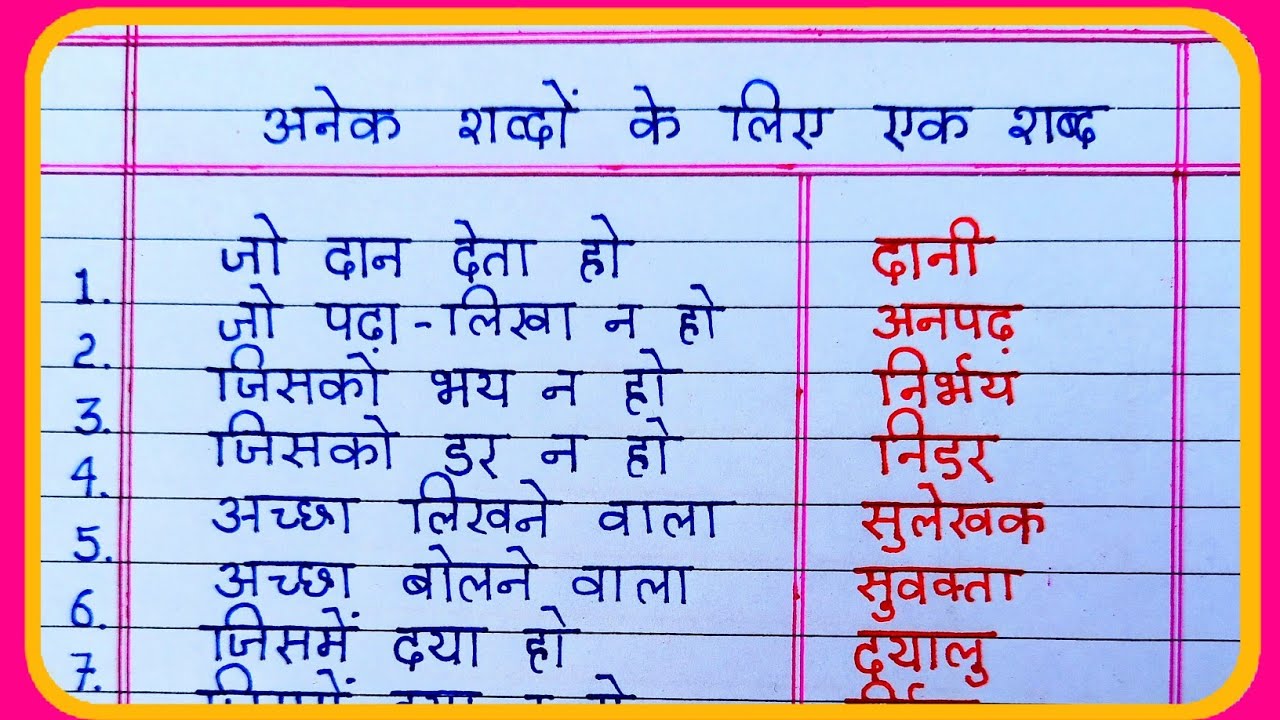 अनेक शब्दों के लिए एक शब्द
1. जो दान देता हो दानी
2. जो पढ़ा-लिखा न हो अनपढ़
3. जिसको भय न हो निर्भय
4. जिसको डर न हो निडर
5. अच्छा लिखने वाला सुलेखक
6. अच्छा बोलने वाला सुवक्ता
7. जिसमें दया हो दयालु